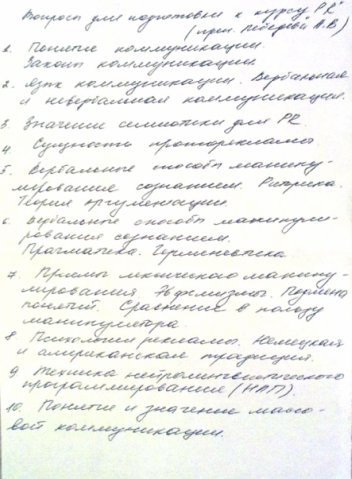 Вопросы для подготовки к курсу PR"
(преп. Лебедевой Л.В)
1. Понятие коммуникации.
Законы коммуникации.
2. Язык коммуникации. Вербальная
и невербальная коммуникации.
3. Значение семиотики для PR
4. Сущность проторекламы.
5. Вербальные способы манипу-
лирования сознанием. Риторика.
Теория аргументации.
6. Вербальные способы манипули-
рования сознанием.
Прагматика. Герменевтика.
7. Приемы лексического манипу-
лирования Эвфемизмы. Подмена
понятий. Сравнение в пользу
манипулятора.
8. Психология рекламы. Немецкая
и американская традиция.
9 Техника нейтролингвистического
программирования (НЛП).
10. Понятие и значение массо-
вой коммуникации.